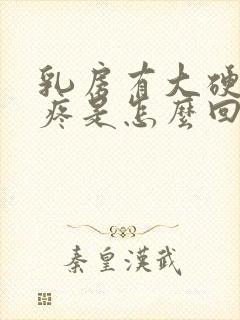 乳房有大硬
疼是怎麼回
秦皇漢武